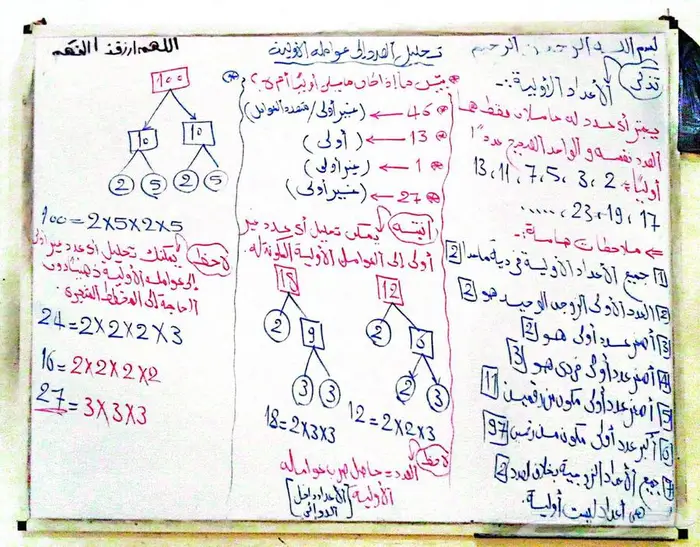 بسم الله الرحمن الرحيم
تذكر
الأعداد الأولية:-
يعتبر أي عدد له عاملان فقط هما
العدد نفسه و الواحد الصحيح عدد "ا
أوليًا: 2، 3، 5، 7، 11، 13
17، 19، 23، ......
ملاحظات هامة:-
1 جميع الأعداد الأولية فردية ماعدا 2
2 العدد الأولى الزوجى الوحيد هو 2
3 أصغر عدد أولى هو 2
4 أصغر عدد أولى فردى هو 3
5 أصغر عدد أولى مكون من رقمين 11
6 أكبر عدد أولى مكون من رقمين 97
7 جميع الأعداد الزوجية بخلاف العدد 2
هى أعداد ليست أولية.
تحليل العدد إلى عوامله الأولية
بيّن ما إذا كان ما يلى أوليًا أم لا؟
46 ← (غير أولى/متعدد العوامل)
13 ← (أولى)
1 ← (غير أولى)
27 ← (غير أولى)
انتبه
يمكن تحليل أى عدد غير
أولى إلى العوامل الأولية المكونة له
18 12
2 9 2 6
3 3 2 3
18=2×3×3
12=2×2×3
لاحظ
العدد = حاصل ضرب عوامله
الأولية [الأعداد داخل
الدوائر]
اللهم ارزقنا الفهم
100
10 10
2 5 2 5
100=2×5×2×5
لاحظ
يمكنك تحليل أى عدد غير أولى
إلى عوامله الأولية ذهنيًا دون
الحاجة إلى المخطط الشجرى
24=2×2×2×3
16=2×2×2×2
27=3×3×3